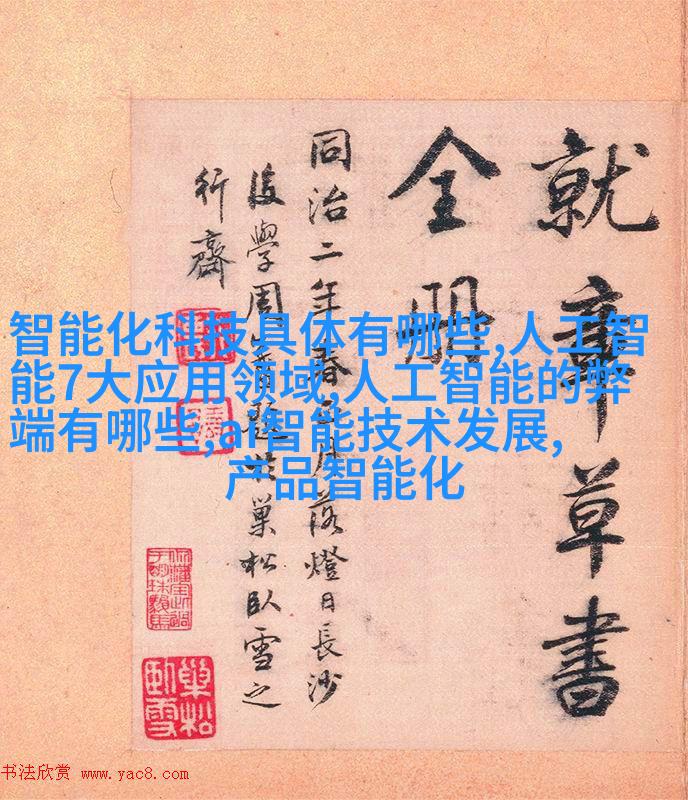 就章草書
全册
同治二年春月落燈日長沙
後學周題於巢松臥雪之
行齋
智能化科技具体有哪些,人工智
能7大应用领域,人工智能的弊
端有哪些,ai智能技术发展,
产品智能化
巢松
臥雪
书法欣赏 www.yac8.com